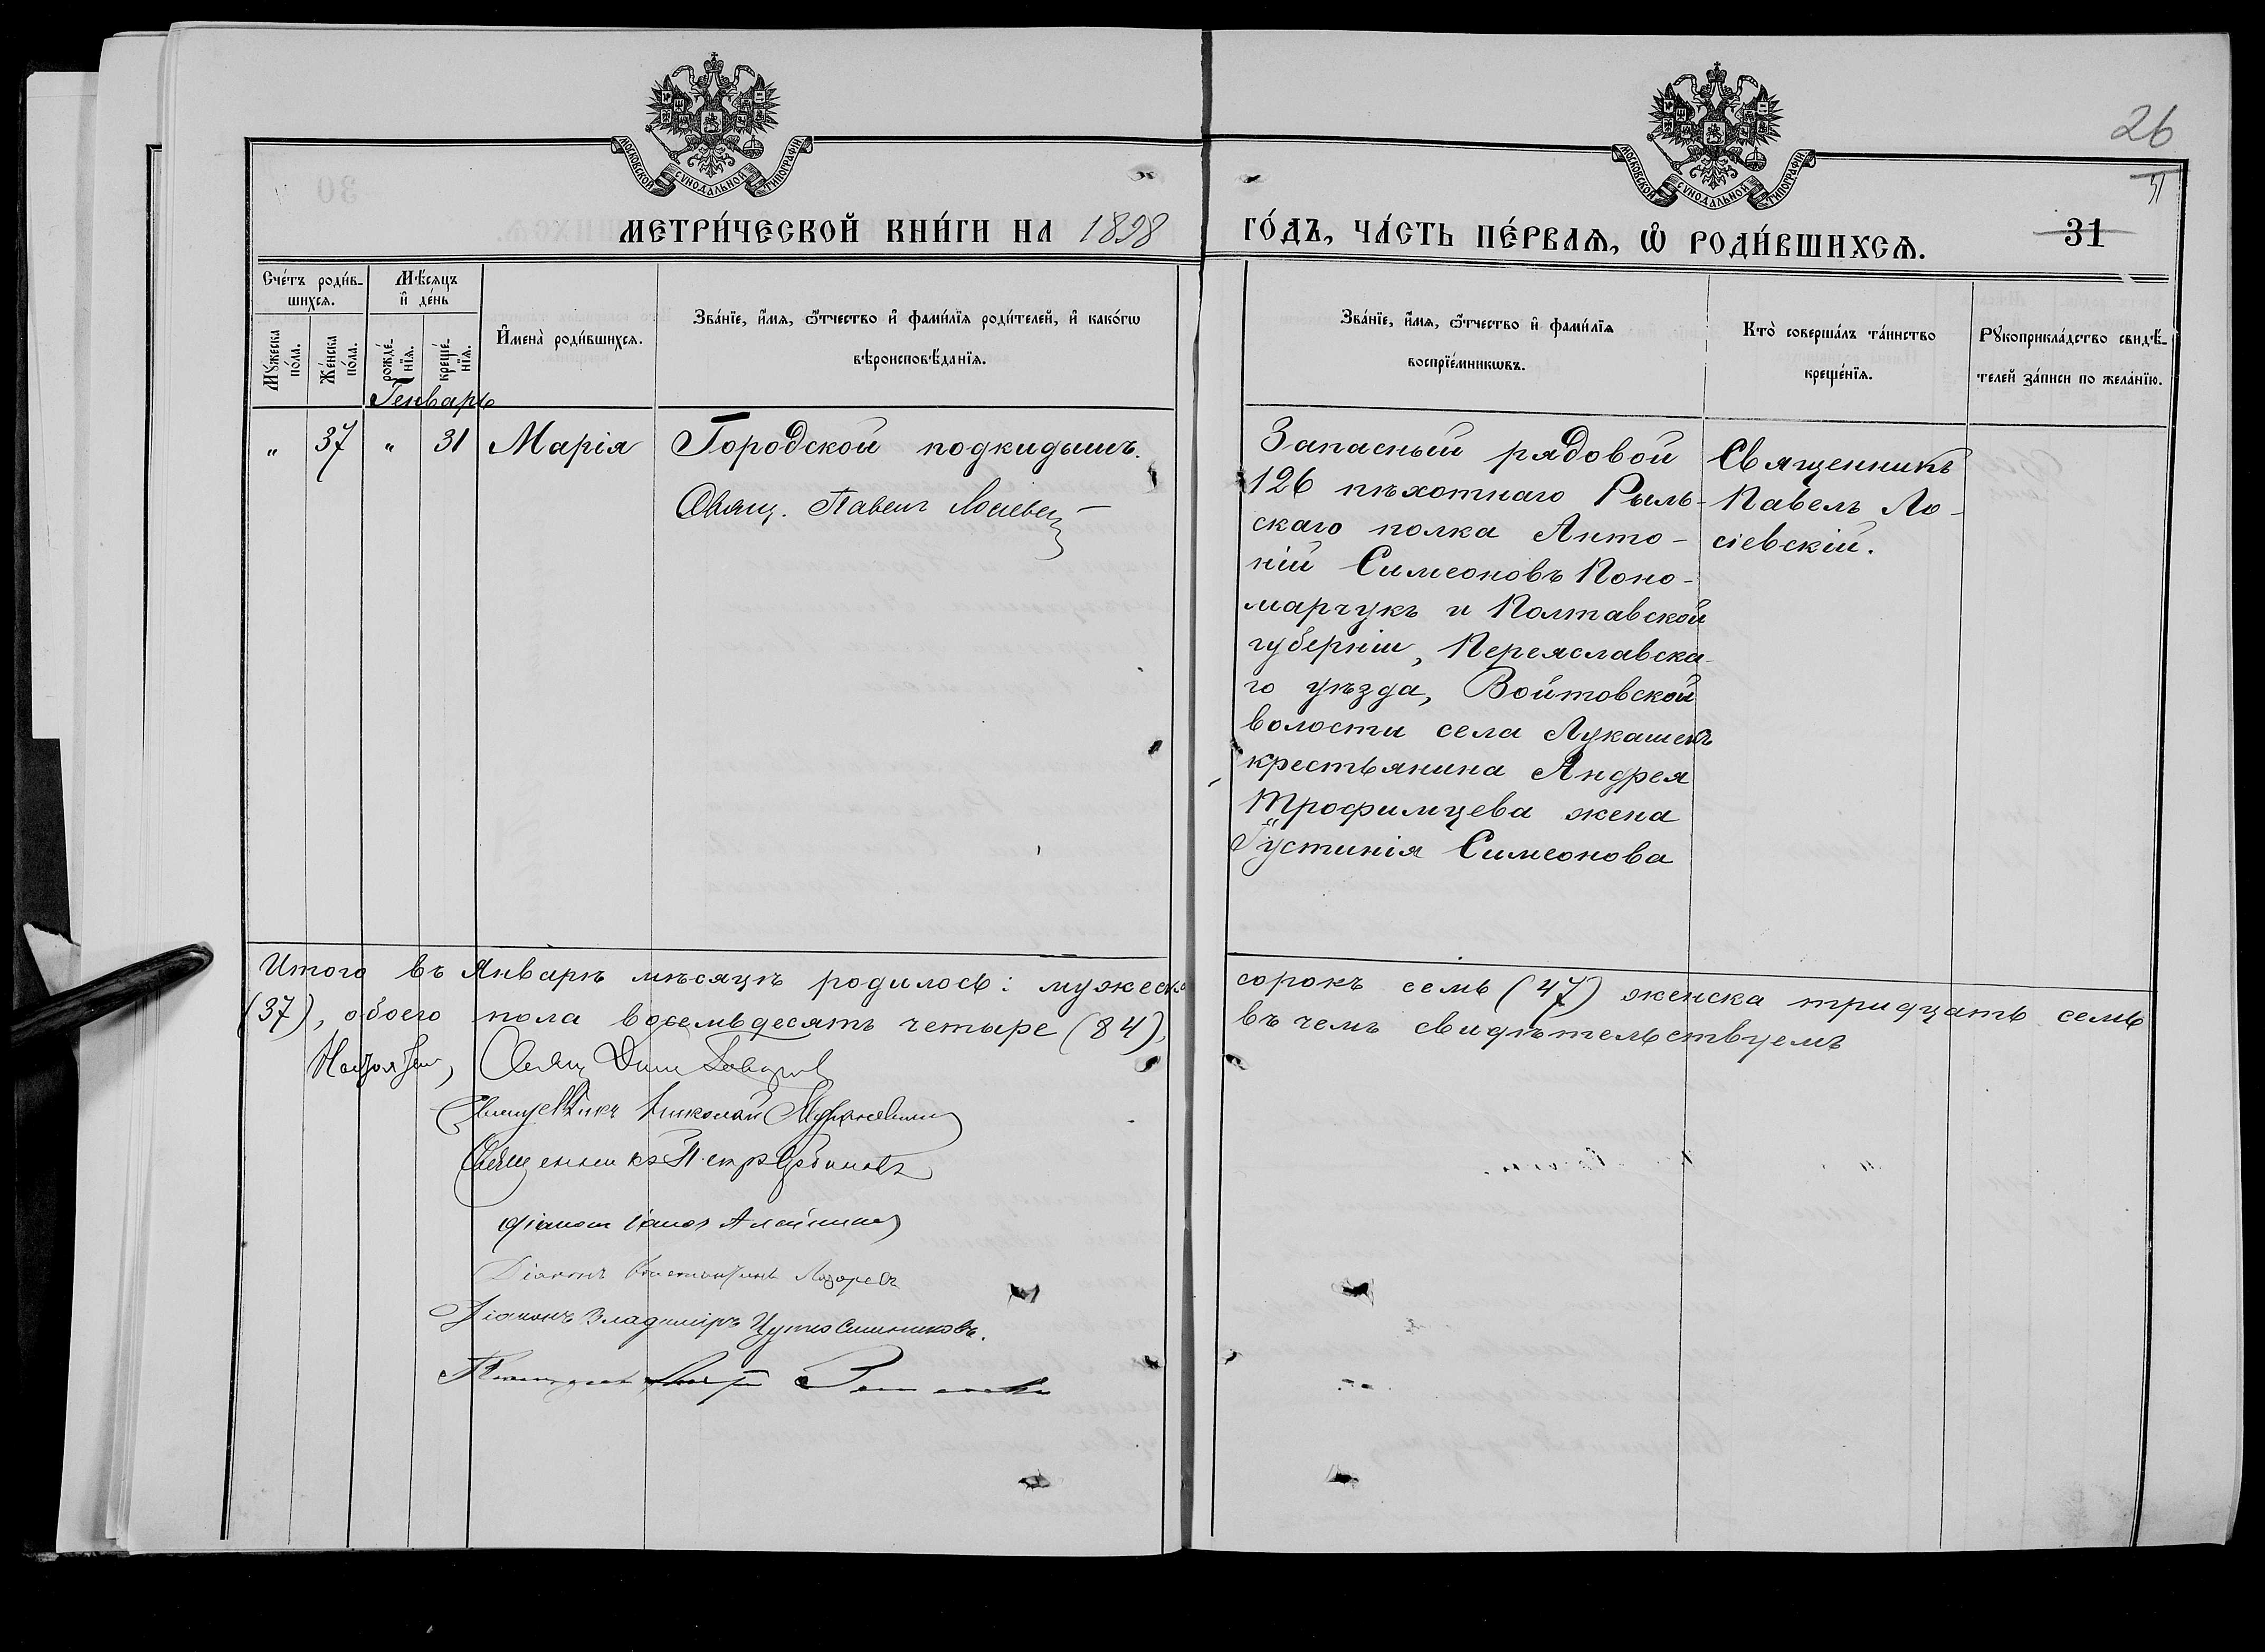 МОСКОВСКОЙ СѴНОДАЛЬНОЙ ТИПОГРАФІИ
МОСКОВСКОЙ СѴНОДАЛЬНОЙ ТИПОГРАФІИ
26
31
МЕТРИ́ЧЕСКОЙ КНИ́ГИ НА 1898
ГО́ДЪ, ЧА́СТЬ ПЕ́РВАѦ, Ѡ҆ РОДИ́ВШИХСѦ.
Сче́тъ роди́в-
шихсѧ.
Мѣ́сѧцъ
и҆ де́нь
Мꙋ́жеска
по́ла.
Же́нска
по́ла.
рожде́-
нїѧ.
креще́-
нїѧ.
И҆мена̀ роди́вшихсѧ.
Зва́нїе, и҆́мѧ, ѻ҆́тчество и҆ фами́лїѧ роди́телей, и҆ како́гѡ
вѣроисповѣ́данїѧ.
Зва́нїе, и҆́мѧ, ѻ҆́тчество и҆ фами́лїѧ
воспрїе́мникѡвъ.
Кто̀ соверша́лъ та́инство
креще́нїѧ.
Рꙋкоприкла́дство свидѣ́-
телей за́писи по жела́нїю.
Генварь
„ 37 „ 31 Марія
Городской подкидышъ.
Свящ. Павелъ Лосіевскій
Запасный рядовой
126 пѣхотнаго Рыль-
скаго полка Анто-
ній Симеоновъ Поно-
марчукъ и Полтавской
губерніи, Переяславска-
го уѣзда, Войтовской
волости села Лукашевъ
крестьянина Андрея
Трофимцева жена
Іустинія Симеонова
Священникъ
Павелъ Ло-
сіевскій.
Итого въ Январѣ мѣсяцѣ родилось: мужеска сорокъ семь (47) женска тридцать семь
(37), обоего пола восемьдесятъ четыре (84), въ чемъ свидѣтельствуемъ
Настоятель, Свящ
Священникъ Николай
Священникъ Петръ
Діаконъ
Діаконъ Константинъ Лазаревъ
Діаконъ Владиміръ